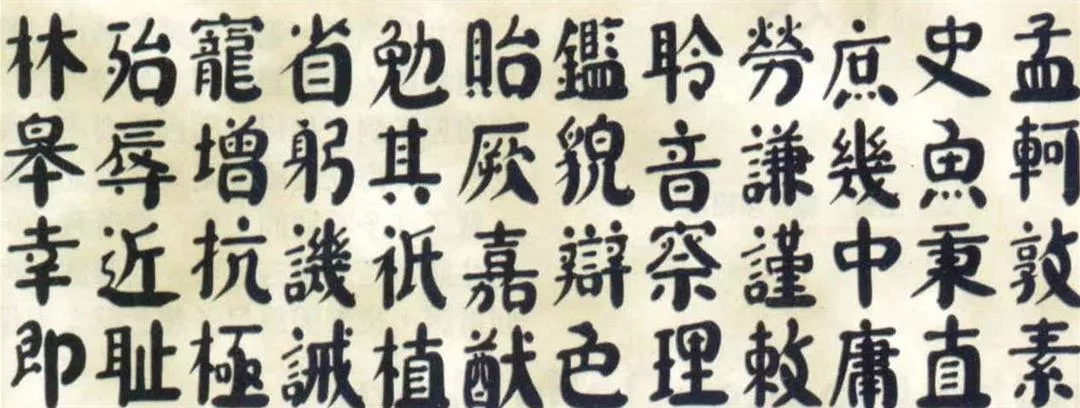 孟軻敦素
史魚秉直
庶幾中庸
勞謙謹敕
聆音察理
鑑貌辯色
貽厥嘉猷
勉其祗植
省躬譏誡
寵增抗極
殆辱近恥
林皋幸即